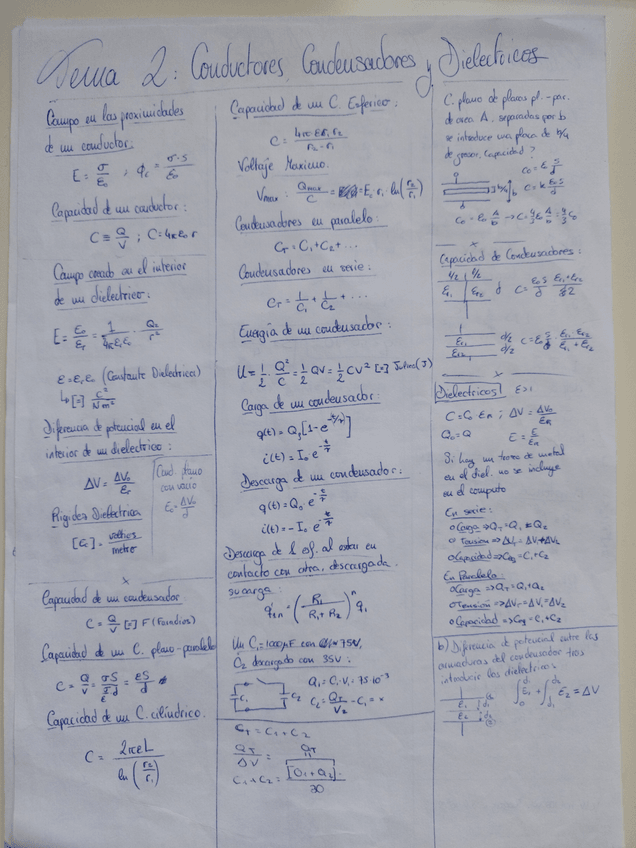 Tema 2: Conductores, Condensadores y Dieléctricos
Campo en las proximidades
de un conductor:
E = σ/ε₀ ; ϕ = σ·s/ε₀
Capacidad de un conductor:
C ≡ Q/V ; C = 4πε₀r
Campo creado en el interior
de un dielectrico:
E = E₀/εr = 1/4πεrε₀ · Q₂/r²
ε = εrε₀ (Constante Dielectrica)
↳ [=] C²/Nm²
Diferencia de potencial en el
interior de un dielectrico:
ΔV = ΔV₀/εr
Cond. plano
con vacio
E₀ = ΔV₀/d
Rigidez Dielectrica
= voltios/metro
Capacidad de un condensador
C = Q/V [=] F (Faradios)
Capacidad de un C. plano-paralelo
C = Q/V = εS/d
Capacidad de un C. cilíndrico.
C = 2πεL / ln(r₂/r₁)
Capacidad de un C. Esferico:
C = 4πεr₁r₂ / r₂-r₁
Voltaje Maximo:
Vmax: Qmax/C = E₀ r₁ · ln(r₂/r₁)
Condensadores en paralelo:
CT = C₁+C₂+...
Condensadores en serie:
CT = 1/C₁ + 1/C₂ + ...
Energía de un condensador:
U = 1/2 · Q²/C = 1/2 QV = 1/2 CV² [=] Julios (J)
Carga de un condensador:
i(t) = I₀ e^-t/τ
Descarga de un condensador:
q(t) = Q₀ · e^-t/τ
i(t) = -I₀ e^-t/τ
Descarga de 1 esf. al estar en
contacto con otra, descargada.
su carga:
= (R₁/R₁+R₂)ⁿ q₁
Un C₁ = 1000μF con 75V,
C₂ descargado con 35V:
C₁ C₂
Q₁ = C₁·V₁ = 75·10⁻³
C₂ = QT/V₂ - C₁ =
CT = C₁+C₂
QT/ΔV =
C₁+C₂ = [Q₁+Q₂]/30
C. plano de placas pl.-par.
de area A, separadas por b
se introduce una placa de b/4
de grosor, Capacidad?
b/4 b
C₀ = ε₀ A/b → C = 4/3 ε₀ A/b = 4/3 C₀
Capacidad de Condensadores:
εr₁ εr₂ d
C = ε₀S/d · εr₁+εr₂/2
εr₁ d/2
εr₂ d/2
C = ε₀ S/d · εr₁·εr₂/εr₁+εr₂
Dielectricos! ε>1
C = C₀ εR ; ΔV = ΔV₀/εR
Q₀ = Q
Si hay un trozo de metal
en el diel. no se incluye
en el computo
En serie:
o Carga => QT = Q₁ = Q₂
o Tension => ΔVT = ΔV₁+ΔV₂
o Capacidad => Ceq = C₁+C₂
En Paralelo
o Carga => QT = Q₁+Q₂
o Tensión => ΔVT = ΔV₁ = ΔV₂
o Capacidad => Ceq = C₁+C₂
b) Diferencia de potencial entre las
armaduras del condensador tras
introducir los dielectricos
E₁ d₁
E₂ d₂
∫ E₁ + ∫ E₂ = ΔV